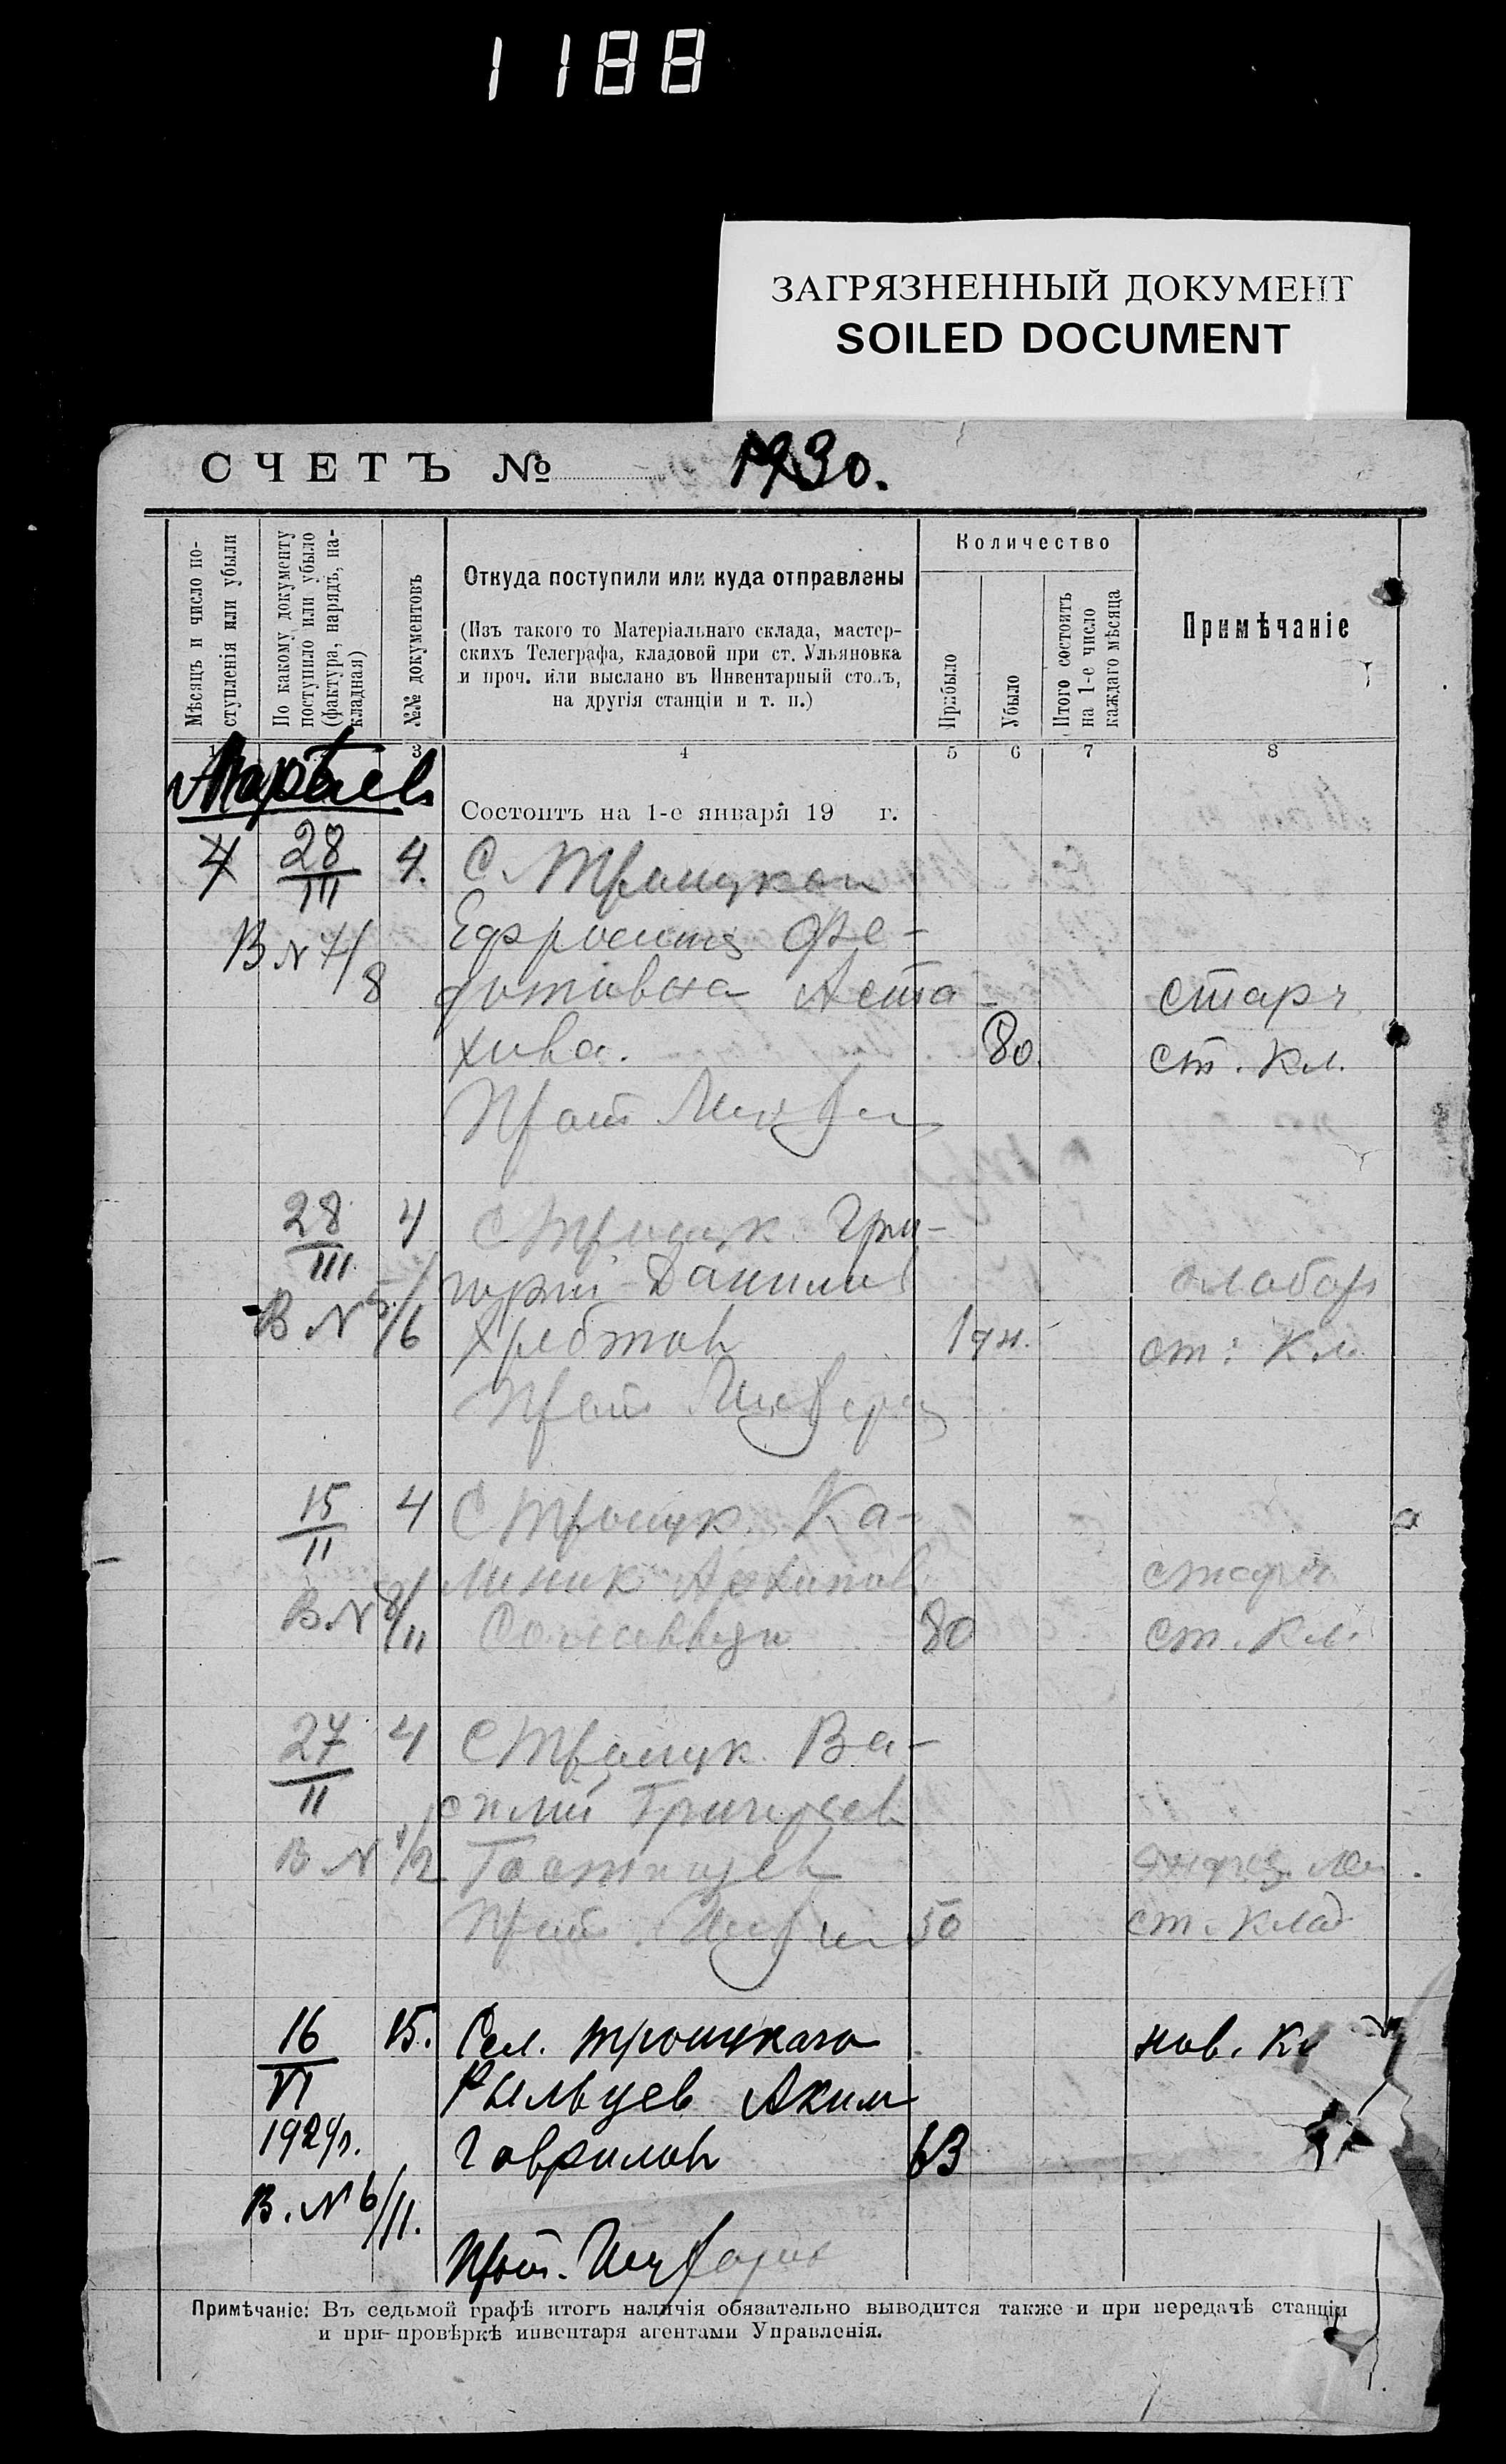 1188
ЗАГРЯЗНЕННЫЙ ДОКУМЕНТ
SOILED DOCUMENT
СЧЕТЪ № 1930.
Мѣсяцъ и число по-
ступленія или убыли
По какому документу
поступило или убыло
(фактура, нарядъ, на-
кладная)
№№ документовъ
Откуда поступили или куда отправлены
(Изъ такого то Матеріальнаго склада, мастер-
скихъ Телеграфа, кладовой при ст. Ульяновка
и проч. или выслано въ Инвентарный столъ,
на другія станціи и т. п.)
Количество
Прибыло
Убыло
Итого состоитъ
на 1-е число
каждаго мѣсяца
Примѣчаніе
1 3 4 5 6 7 8
Состоитъ на 1-е января 19 г.
4 28/III 4. С. Троицкой
В N 7/8 Ефросинія Фе-
дотовна Аста-
хова. 80. старч
ст. Кл.
Прот
28/III 4 С Троицк. Гри-
горій Данилов
В N 5/6 Хребтов 1 дн. слабор
ст. Кл.
Прот
15/II 4 С Троицк. Ка-
линик Архипов старч
В N 8/11 80 ст. Кл.
27/II 4 С Троицк. Ва-
силий Григорьев
В N 1/2
Прот. 50 ст. Клад
16/VI 15. Сел. Троицкаго нов. Кл
Рыльцев Аким
1929г. Гаврилов 63
В. N 6/11.
Прот.
Примѣчаніе: Въ седьмой графѣ итогъ наличія обязательно выводится также и при передачѣ станціи
и при провѣркѣ инвентаря агентами Управленія.